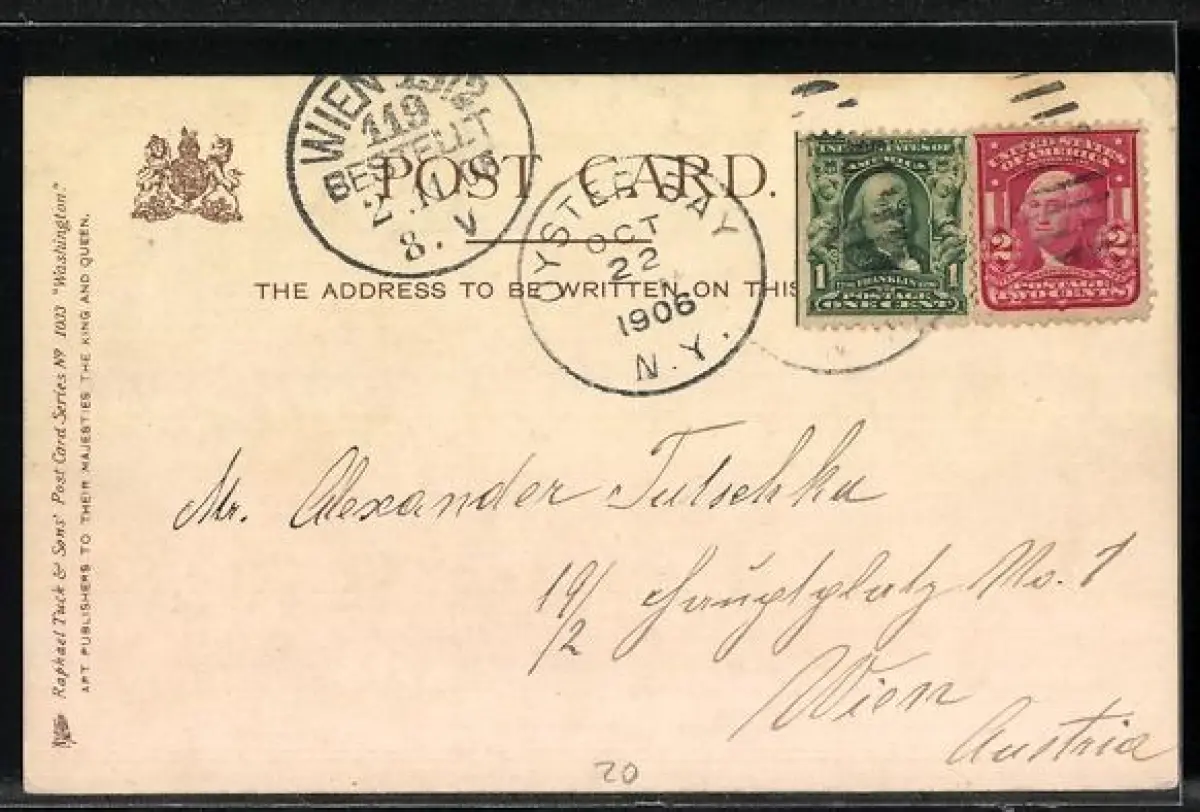 WIEN 19/2
119
BESTELLT
2.11.06
8. V
POST CARD.
OYSTER BAY
OCT
22
1906
N.Y.
THE ADDRESS TO BE WRITTEN ON THIS
UNITED STATES OF
AMERICA
1 FRANKLIN 1
POSTAGE
ONE CENT
UNITED STATES
OF AMERICA
2 2
POSTAGE
TWO CENTS
Raphael Tuck & Sons' Post Card Series No 1033 "Washington."
ART PUBLISHERS TO THEIR MAJESTIES THE KING AND QUEEN.
Mr. Alexander Tutschka
19/2 Hauptplatz No. 1
Wien
Austria
20